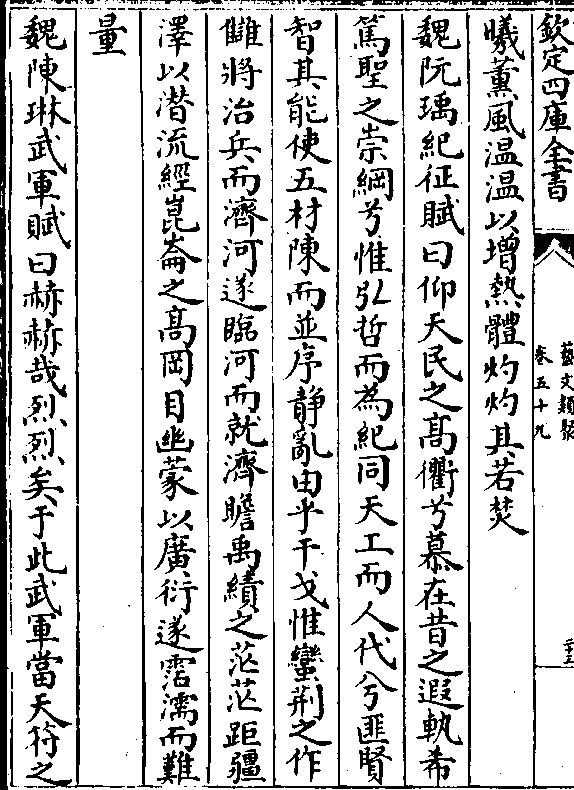 欽定四庫全書
藝文類聚
卷五十九
二十三
曦薰風温温以增熱體灼灼其若焚
魏阮瑀紀征賦曰仰天民之髙衢兮慕在昔之遐軌希
篤聖之崇綱兮惟弘哲而為紀同天工而人代兮匪賢
智其能使五材陳而並序静亂由乎干戈惟蠻荆之作
讎將治兵而濟河遂臨河而就濟瞻禹績之茫茫距疆
澤以潜流經崑崙之髙岡目幽蒙以廣衍遂霑濡而難
量
魏陳琳武軍賦曰赫赫哉烈烈矣于此武軍當天符之